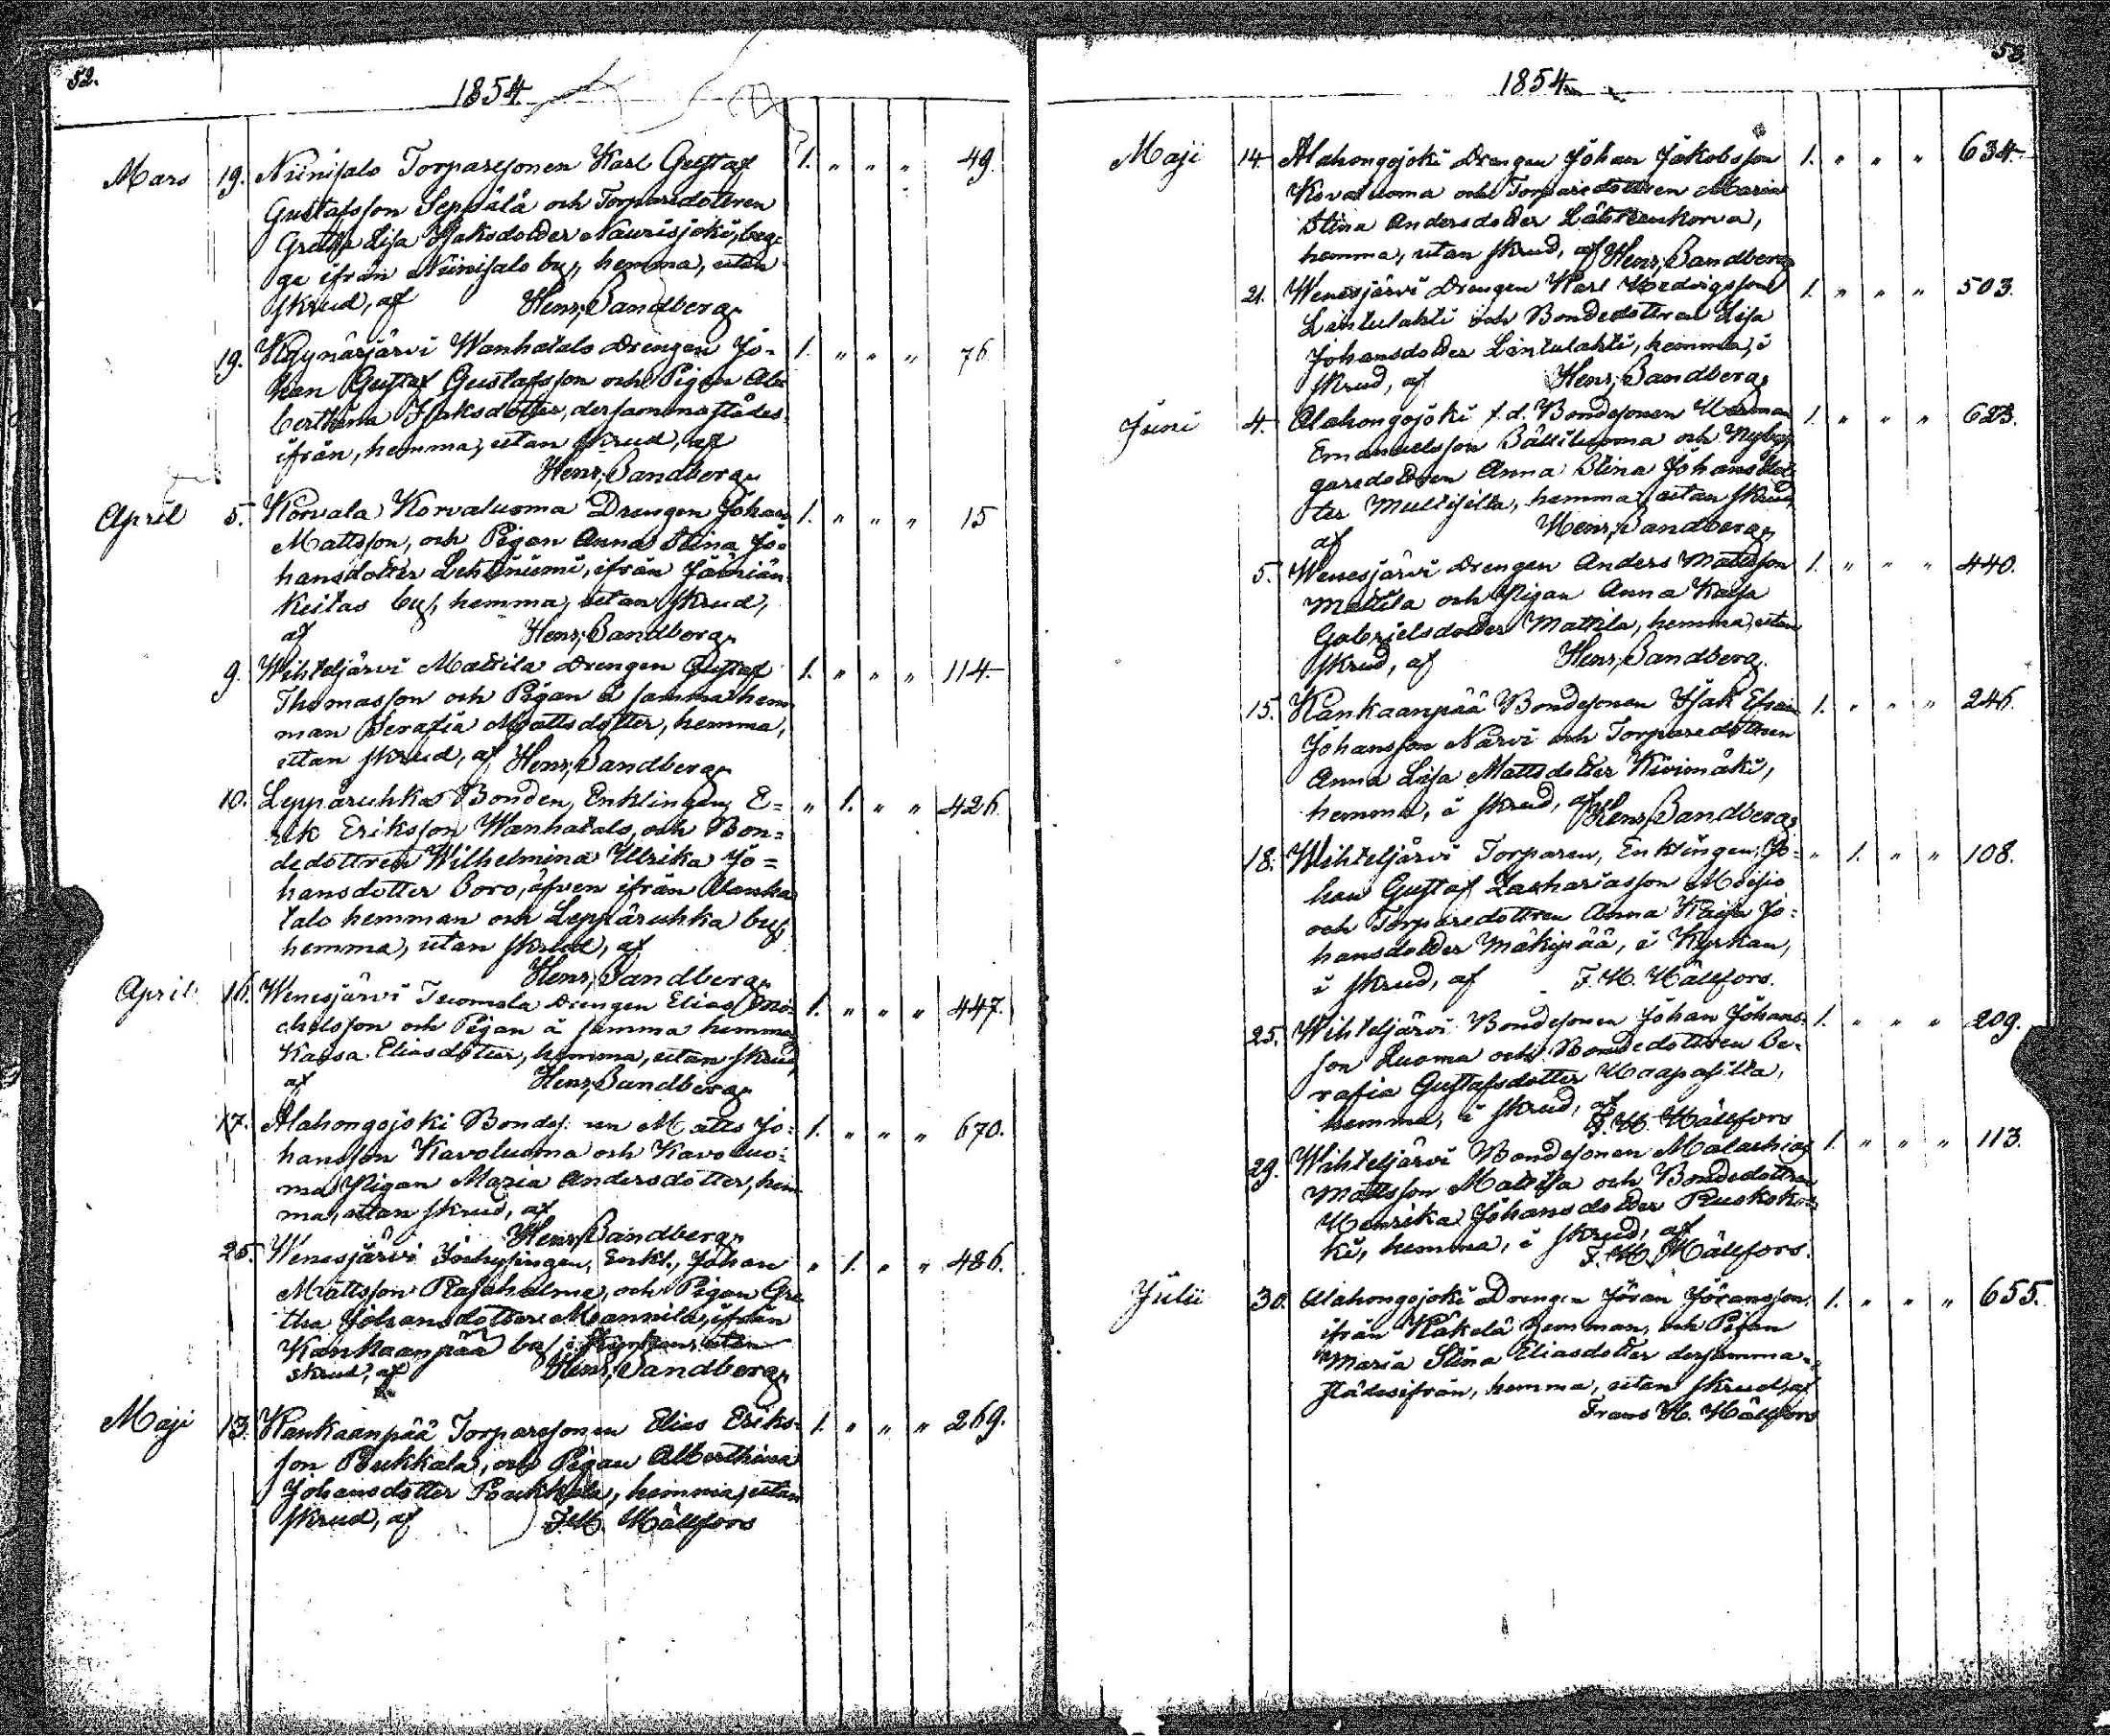 52.
1854.
Mars 19. Niinisalo Torparesonen Karl Gustaf 1. " " " 49.
Gustafsson Seppälä och Torparedottren
Gretha Lisa Isaksdotter Naurisjoki, beg-
ge ifrån Niinisalo by, hemma, utan
skrud, af Henr. Sandberg.
19. Kyynärjärvi Wanhatalo Drengen Jo- 1. " " " 76
han Gustaf Gustafsson och Pigan Al-
berthina Isaksdotter, dersammastädes-
ifrån, hemma, utan skrud, af
Henr. Sandberg.
April 5. Korvala Korvaluoma Drengen Johan 1. " " " 15
Mattsson, och Pigan Anna Stina Jo-
hansdotter Lehtiniemi, ifrån Jämiän-
keitas by, hemma, utan skrud,
af Henr. Sandberg.
9. Wihteljärvi Mattila Drengen Gustaf 1. " " " 114.
Thomasson och Pigan å samma hem-
man Serafia Mattsdotter, hemma,
utan skrud, af Henr. Sandberg.
10. Lepparuhka Bonden, Enklingen, E= " 1. " " 426.
rik Eriksson Wanhatalo, och Bon=
dedottren Wilhelmina Ulrika Jo=
hansdotter Soro, äfven ifrån Wanha
talo hemman och Lepparuhka by,
hemma, utan skrud, af
Henr. Sandberg.
April 16. Wenesjärvi Tuomola Drengen Elias Mi- 1. " " " 447.
chelsson och Pigan å samma hemman
Kaisa Eliasdotter, hemma, utan skrud,
af Henr. Sandberg.
17. Alahongojoki Bondes en Matts Jo- 1. " " " 670.
hansson Kavoluoma och Kavoluo-
ma Pigan Maria Andersdotter, hem-
ma, utan skrud, af
Henr. Sandberg.
25. Wenesjärvi Inhysingen, Enkl., Johan " 1. " " 486.
Mattsson Rajahalme, och Pigan Gre
tha Johansdotter Mannila, ifrån
Kankaanpää by, i Kyrkan, utan
skrud, af Henr. Sandberg.
Maji 13. Kankaanpää Torparesonen Elias Eriks- 1. " " " 269.
son Pukkala, och Pigan Alberthina
Johansdotter Poukkula, hemma, utan
skrud, af F.H. Hällfors
53.
1854.
Maji 14. Alahongojoki Drengen Johan Jakobsson 1. " " " 634.
Korvaluoma och Torparedottren Maria
Stina Andersdotter Lähteenkorva,
hemma, utan skrud, af Henr. Sandberg
21. Wenesjärvi Drengen Karl Hedvigsson 1. " " " 503.
Lintulahti och Bondedottren Lisa
Johansdotter Lintulahti, hemma, i
skrud, af Henr. Sandberg.
Juni 4. Alahongojoki f.d. Bondesonen Herman 1. " " " 623.
Emanuelsson Sälliluoma och Nybyg-
garedottren Anna Stina Johansdot-
ter Multisilta, hemma, utan skrud,
af Henr. Sandberg
5. Wenesjärvi Drengen Anders Mattsson 1. " " " 440.
Mattila och Pigan Anna Kaisa
Gabrielsdotter Mattila, hemma, utan
skrud, af Henr. Sandberg.
15. Kankaanpää Bondesonen Isak Efraim 1. " " " 246.
Johansson Narvi och Torparedottren
Anna Lisa Mattsdotter Kivimäki,
hemma, i skrud, af Henr. Sandberg.
18. Wihteljärvi Torparen, Enklingen, Jo- " 1. " " 108.
han Gustaf Zachariasson Moisio
och Torparedottren Anna Kaisa Jo-
hansdotter Mäkipää, i Kyrkan,
i skrud, af F. H. Hällfors.
25. Wihteljärvi Bondesonen Johan Johans- 1. " " " 209.
son Luoma och Bondedottren Se-
rafia Gustafsdotter Haapasilta,
hemma, i skrud, af
F. H. Hällfors
29. Wihteljärvi Bondesonen Malachias 1. " " " 113.
Mattsson Mattila och Bondedottren
Henrika Johansdotter Ruokojo-
ki, hemma, i skrud, af
F. H. Hällfors.
Julii 30. Alahongojoki Drengen Jöran Jöransson 1. " " " 655.
ifrån Käkelä hemman, och Pigan
Maria Stina Eliasdotter dersamma-
städesifrån, hemma, utan skrud, af
Frans H. Hällfors